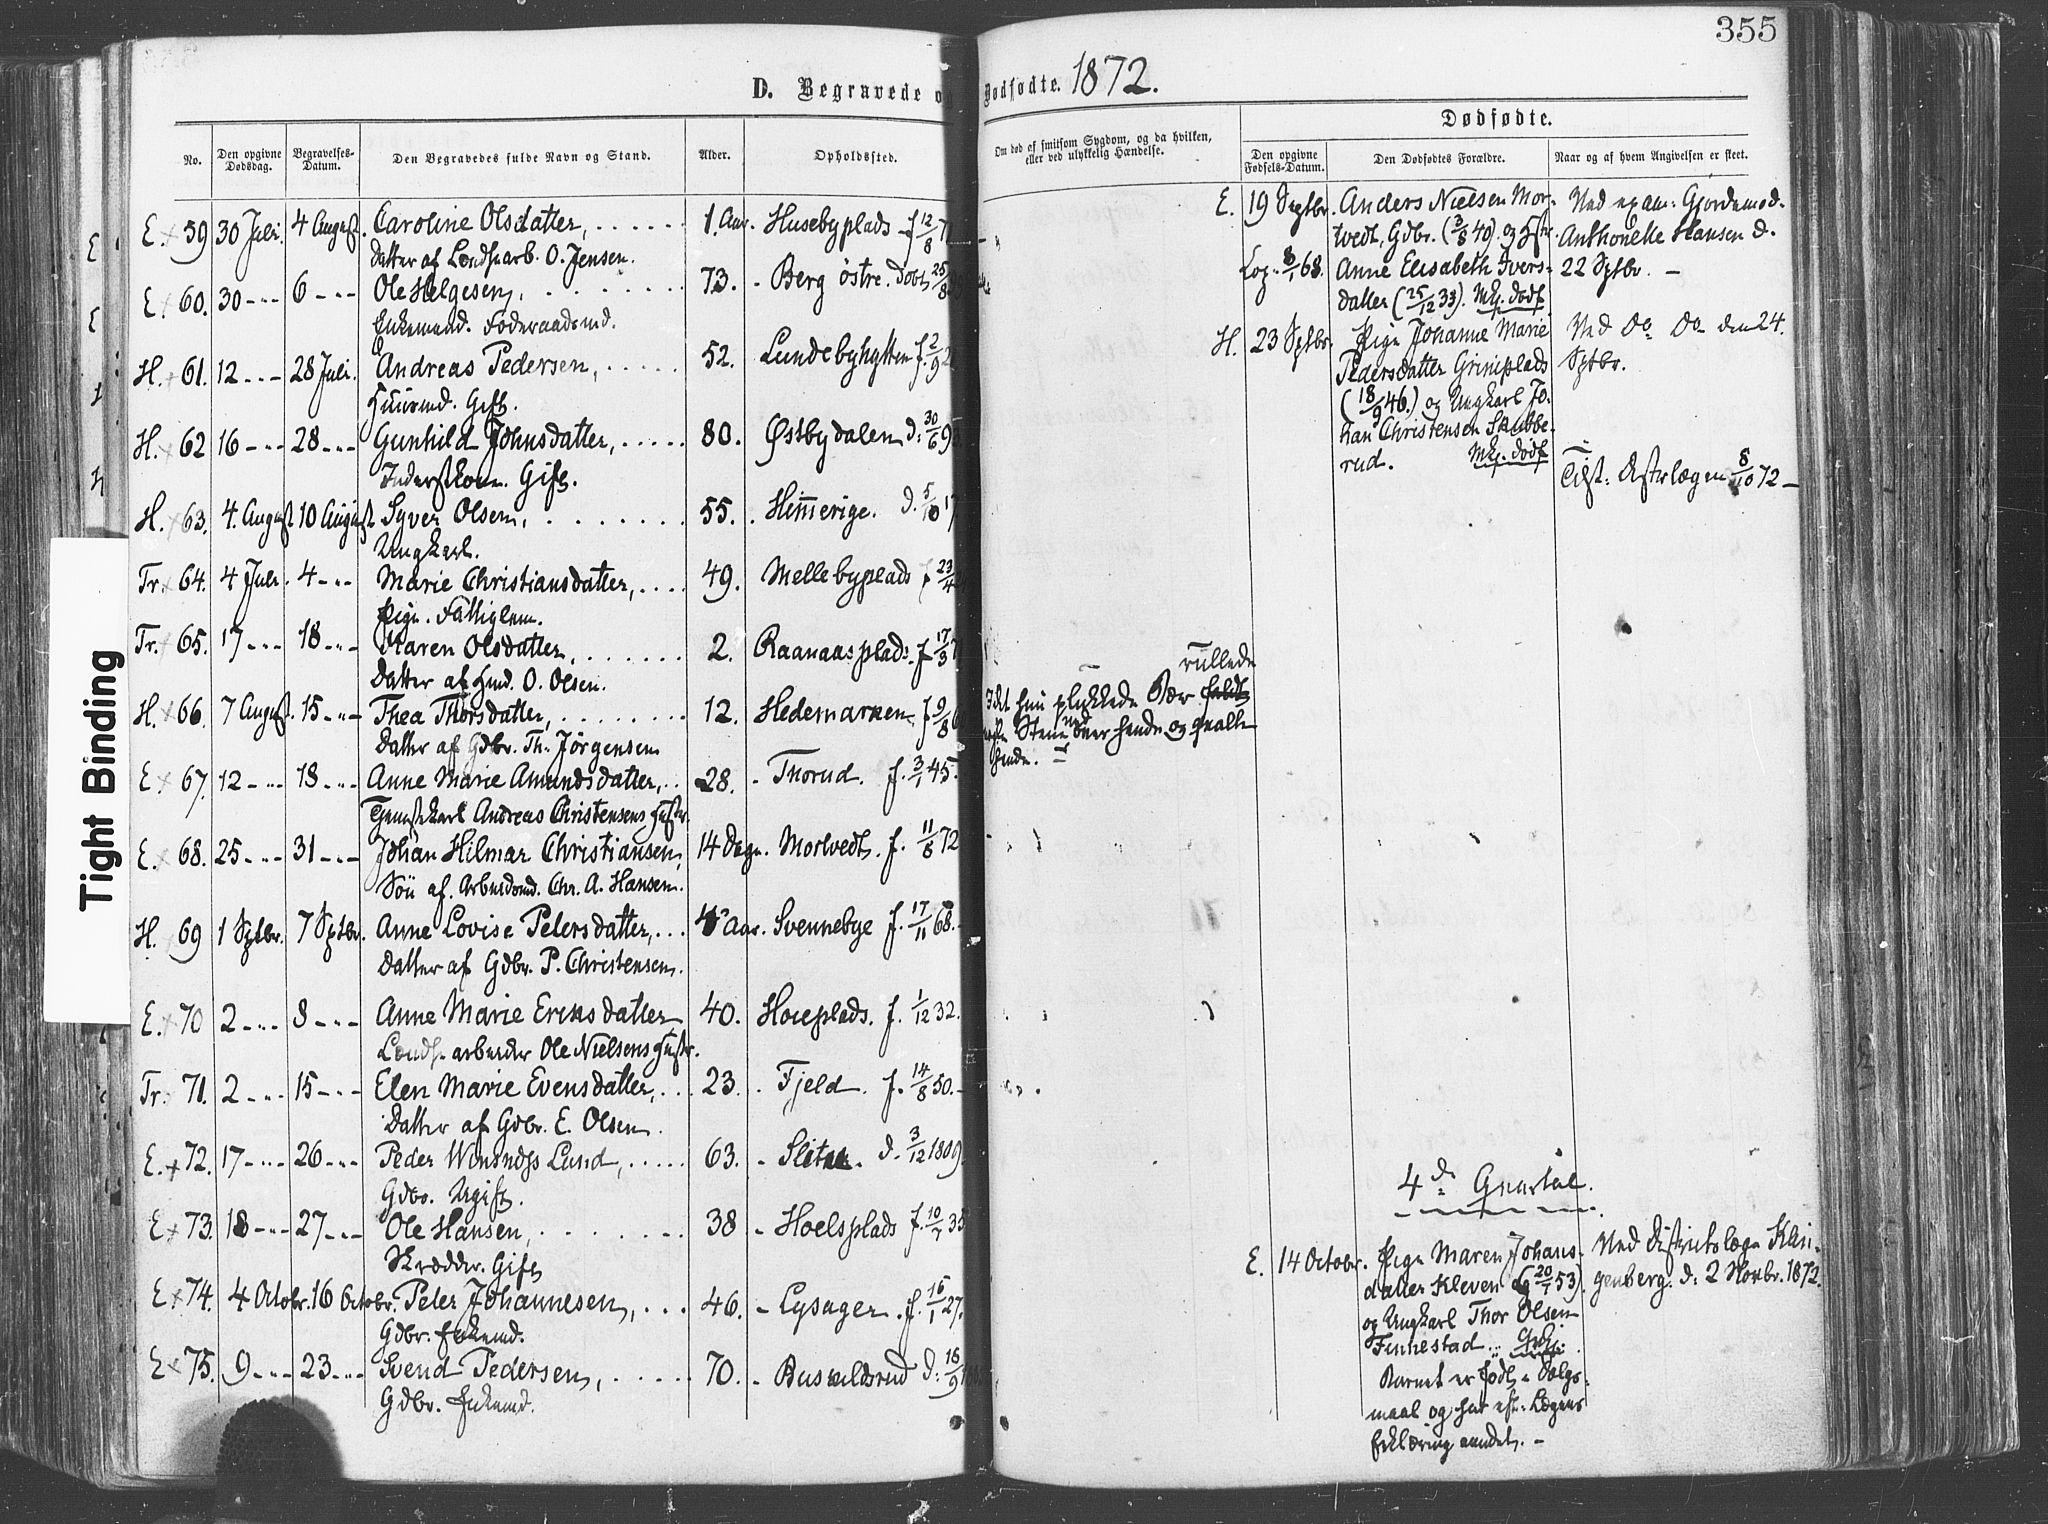 355
D. Begravede o
Dødfødte. 1872.
No.
Den opgivne Dødsdag.
Begravelses-Datum.
Den Begravedes fulde Navn og Stand.
Alder.
Opholdssted.
Om død af smitsom Sygdom, og da hvilken, eller ved ulykkelig Hændelse.
Dødfødte.
Den opgivne Fødsels-Datum.
Den Dødfødtes Forældre.
Naar og af hvem Angivelsen er skeet.
E. 59 30 Juli. 4 August. Caroline Olsdatter, 1. Aar. Husebyplads f 12/8 7
Datter af Landharb. O. Jensen.
E. 60. 30 6 Ole Helgesen, 73. Berg østre. Døbt 25/8
Enkemand. Føderaadsmd.
H. 61. 12 28 Juli. Andreas Pedersen, 52. Lundebyhytten f. 2/9 2
Huusmd. Gift.
H. 62 16 28 Gunhild Johnsdatter, 80. Østbydalen d. 30/6 9
Inderstkone. Gift.
H. 63. 4. August 10 August Syver Olsen, 55. Himerige. d. 5/10 17
Ungkarl.
Tr. 64. 4 Juli. 4 Marie Christiansdatter, 49. Mellebyplads f 23/4
Pige. Fattiglem.
Tr. 65. 17 18 Karen Olsdatter, 2. Raanaasplads. f 17/3 7
Datter af Hmd. O. Olsen.
H. 66. 7 August. 15 Thea Thorsdatter, 12. Hedemarken f 9/8 6
Datter af Gdbr. Th. Jørgensen
E 67. 12 18 Anne Marie Amundsdatter, 28. Thorud. f. 3/1 45.
Tjenestekarl Andreas Christensens Hustr.
E. 68. 25 31 Johan Hilmar Christiansen, 14 Dage. Mortvedt. f. 11/8 72
Søn af Arbeidsmd. Chr. A. Hansen.
H. 69 1 Sptbr. 7 Sptbr. Anne Lovise Petersdatter, Aar. Svennebye f. 17/11 68.
Datter af Gdbr. P. Christensen.
E. 70 2 8 Anne Marie Eriksdatter 40. Hoieplads. f. 1/12 32.
Landh. arbeider Ole Nielsens Hustr.
Tr. 71. 2 15 Elen Marie Evensdatter, 23. Fjeld f. 14/8 50.
Datter af Gdbr. E. Olsen.
E. 72. 17 26 Peder Lund, 63. d. 3/12 1809.
Gdbr. Ugift.
E 73. 18 27 Ole Hansen, 38 Hoelsplads f. 10/7 35
Skrædder. Gift
E 74. 4 Octobr. 16 Octobr. Peter Johannesen, 46. Lysager. f. 15/1 27.
Gdbr. Enkemd.
E 75. 9 23 Svend Pedersen, 70. d. 16/9
Gdbr. Enkemd.
rullede
Idet hun plukkede Bær
Stene ned over hende og qvalte
hende.
E. 19 Septbr. Anders Nielsen Mor-
tvedt, Gdbr. (3/8 40). og Hstr
Anne Elisabeth Ivers-
datter (25/12 33). Mkj. dødf.
Ved exam. Gjordemod.
Anthonette Hansen d.
22 Sptbr.
H. 23 Sptbr. Pige Johanne Marie
Pedersdatter Griniplads
(18/9 46.) og Ungkarl Jo-
han Christensen Skubbe-
rud. Mkj. dødf.
Ved Do Do den 24.
Sptbr.
8/10 72
4de Qvartal.
E. 14 Octobr. Pige Maren Johans-
datter Kleven (20/7 53).
og Ungkarl Thor Olsen
Finnestad
Barnet er født i Dølgs-
maal og har eft. Lægens
Erklæring aandet.
Ved Distriktslæge Klin-
genberg. d. 2 Novbr. 1872.
Tight Binding